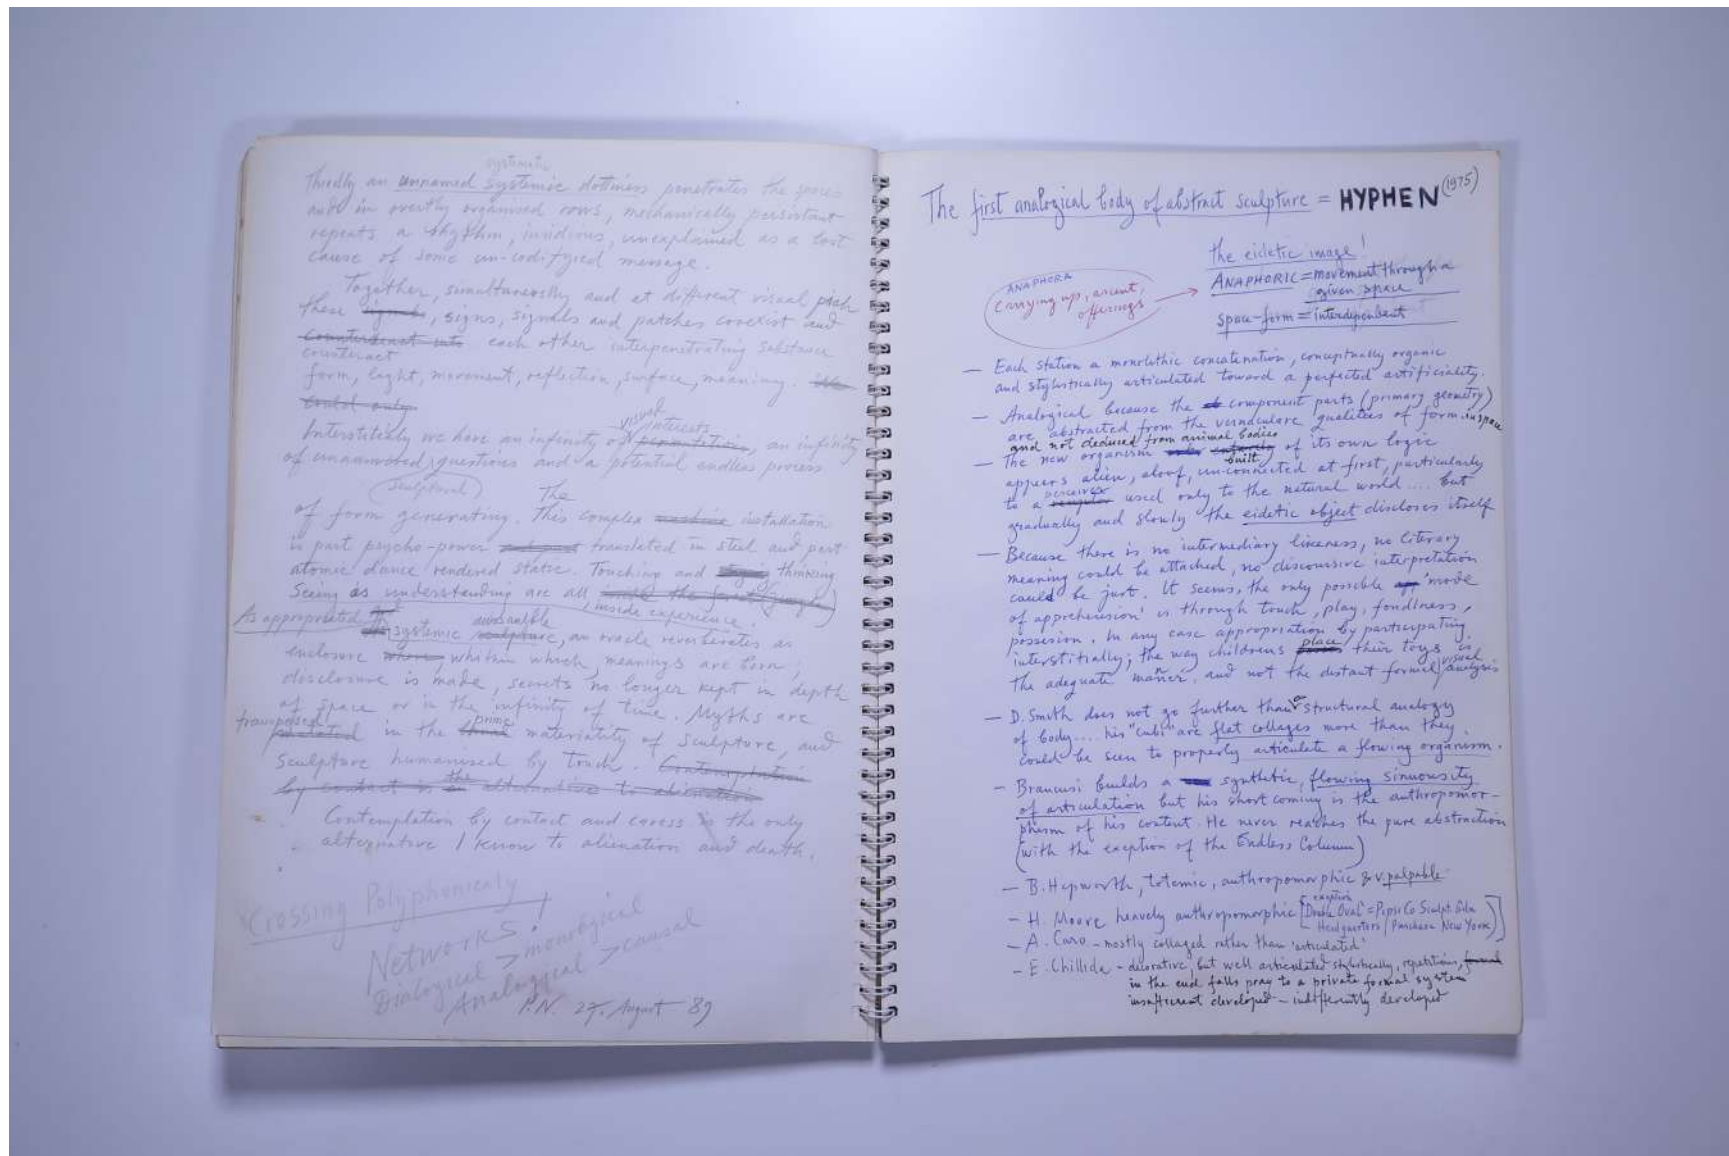 systematic
Thirdly an unnamed systemic dottiness penetrates the spaces
and in overtly organised rows, mechanically persistant
repeats a rhythm, insidious, unexplained as a lost
cause of some un-codifyied message.
Together, simultaneously and at different visual pitch
these signals, signs, signals and patches coexist and
counteract into each other interpenetrating substance
counteract
form, light, movement, reflection, surface, meaning. We
could only
visual
interests
Interstitialy we have an infinity of permutations, an infinity
of unanswered questions and a potential endless process
(sculptural) The
of form generating. This complex machine installation
is part psycho-power translated in steel and part
atomic dance rendered static. Touching and thinking
Seeing as understanding are all
inside experience.
As appropriated
systemic sculpture, an oracle reverberates as
enclosure where, whithin which, meanings are born;
disclosure is made, secrets no longer kept in depth
of space or in the infinity of time. Myths are
transposed prime
in the materiality of sculpture, and
sculpture humanised by touch. Contemplation
by contact is the alternative to alienation
Contemplation by contact and caress is the only
alternative I know to alienation and death.
Crossing Polyphonicaty
Networks!
Dialogical > monological
Analogical > causal
P.N. 27. August 89
The first analogical body of abstract sculpture = HYPHEN (1975)
the eidetic image!
ANAPHORA
carrying up, ascent,
offerings
ANAPHORIC = movement through a
given space
space-form = interdependent
— Each station a monolithic concatenation, conceptually organic
and stylistically articulated toward a perfected artificiality.
— Analogical because the component parts (primary geometry)
are abstracted from the vernaculare qualities of form in space
and not deduced from animal bodies
— The new organism built of its own logic
appears alien, aloof, un-connected at first, particularly
to a perceiver used only to the natural world.... but
gradually and slowly the eidetic object discloses itself
— Because there is no intermediary likeness, no literary
meaning could be attached, no discoursive interpretation
could be just. It seems, the only possible 'mode
of apprehension' is through touch, play, fondlness,
possesion. In any case appropriation by participating
interstitially; the way childrens place their toys is
the adequate mañer, and not the distant formal visual analysis
— D. Smith does not go further than a structural analogy
of body.... his "cubi" are flat collages more than they
could be seen to properly articulate a flowing organism.
— Brancusi builds a synthetic, flowing sinuosity
of articulation but his short coming is the anthropomor-
phism of his content. He never reaches the pure abstraction
(with the exception of the Endless Column)
— B. Hepworth, totemic, anthropomorphic & v. palpable
— H. Moore heavely anthropomorphic [exception
"Double Oval" = PepsiCo Sculpt. Gdn
Headquarters / Purchase New York]
— A. Caro - mostly collaged rather than 'articulated'
— E. Chillida - decorative, but well articulated stylistically, repetitious, formal
in the end falls pray to a private formal system
insufficient developed - indifferently developed